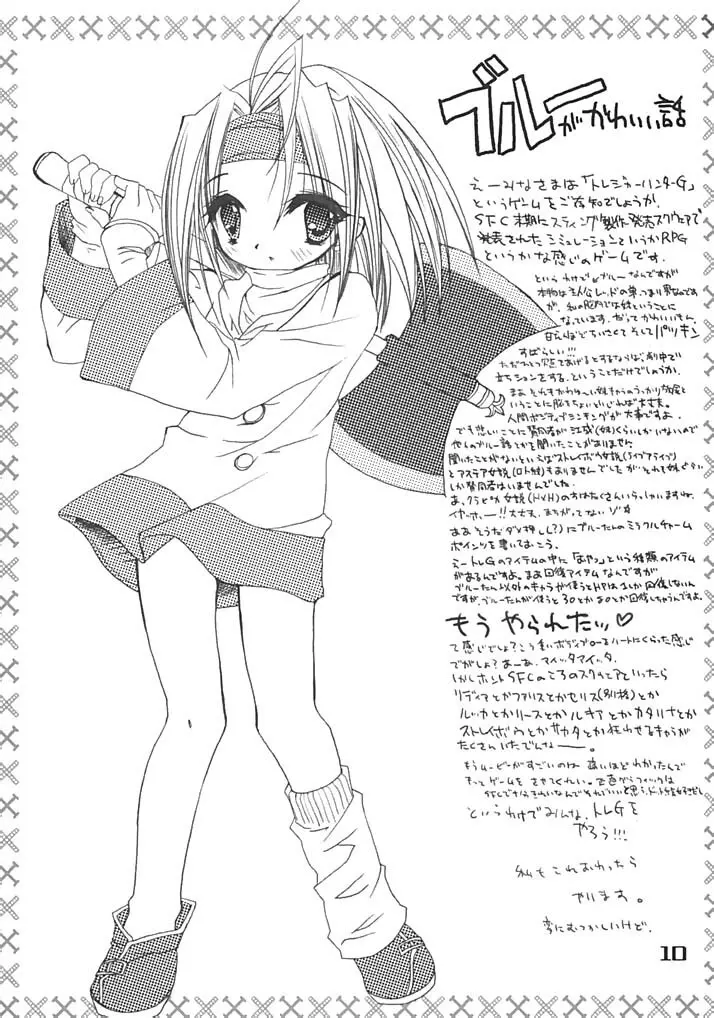 ブルーがかわいい話
えーみなさまは「トレジャーハンターG」
というゲームをご存知でしょうか。
SFC末期にスティング製作発売スクウェアで
発表されたシミュレーションというかRPG
というかな感じのゲームです。
というわけでブルーなんですが
本物は主人公レッドの弟、つまり男なんです
が、私の脳内では妹ということに
なっています。だってかわいいもん。
せんぱどちいさくてそしてパツキン
すばらしい!!!
ただひとつ をあげるとするならば、劇中で
立ちションをする、ということだけでしょうか。
まあ それもかわいい妹キャラのうっかり
ということに脳をちょいといじれば大丈夫。
人間ポジティブシンキングが大事ですよ。
でも悲しいことに賛同者が (妹)くらいしかいないので
他しのブルー話とかを聞いたことがありません
聞いたことがないといえばストレイボウ女説(ライブアライブ)
とアステア女説(ロトの紋)もありませんでしたが それでも妹ぐらい
しか賛同者はいませんでしたね。
あ、クラピカ女説(H×H)の方はたくさんいらっしゃいますね。
イヤッホー!!大丈夫、まちがってないゾ☆
ああそうだダメ押し(?)にブルーたんのミラクルチャーム
ポイントを書いておこう。
えートレGのアイテムの中に「おやつ」という種類のアイテム
があるんですよ。まあ回復アイテムなんですが
ブルーたん以外のキャラが使うとHPは1しか回復しないん
ですが、ブルーたんが使うと30とか50とか回復しちゃうんですよ。
もうやられたッ♡
て感じでしょ?こう重いボディブローをハートにくらった感じ
でがしょ?あーあ、アイッタアイッタ。
しかしホントSFCのころのスクウェアといったら
リディアとかファリスとかセリス(別格)とか
ルッカとかリースとかルキアとかカタリナとか
ストレイボウとかサカタとか狂わせるキャラが
たくさんいたでんなーー。
もうムービーがすごいのは 良いほどわかったんで
もっとゲームをさせてくれい。 グラフィックは
SFCで十分きれいなんでそれでいいと思う。ドット絵好きだし
というわけでみんな、トレGを
やろう!!!
私もこれおわったら
やります。
変にむつかしいけど。
10